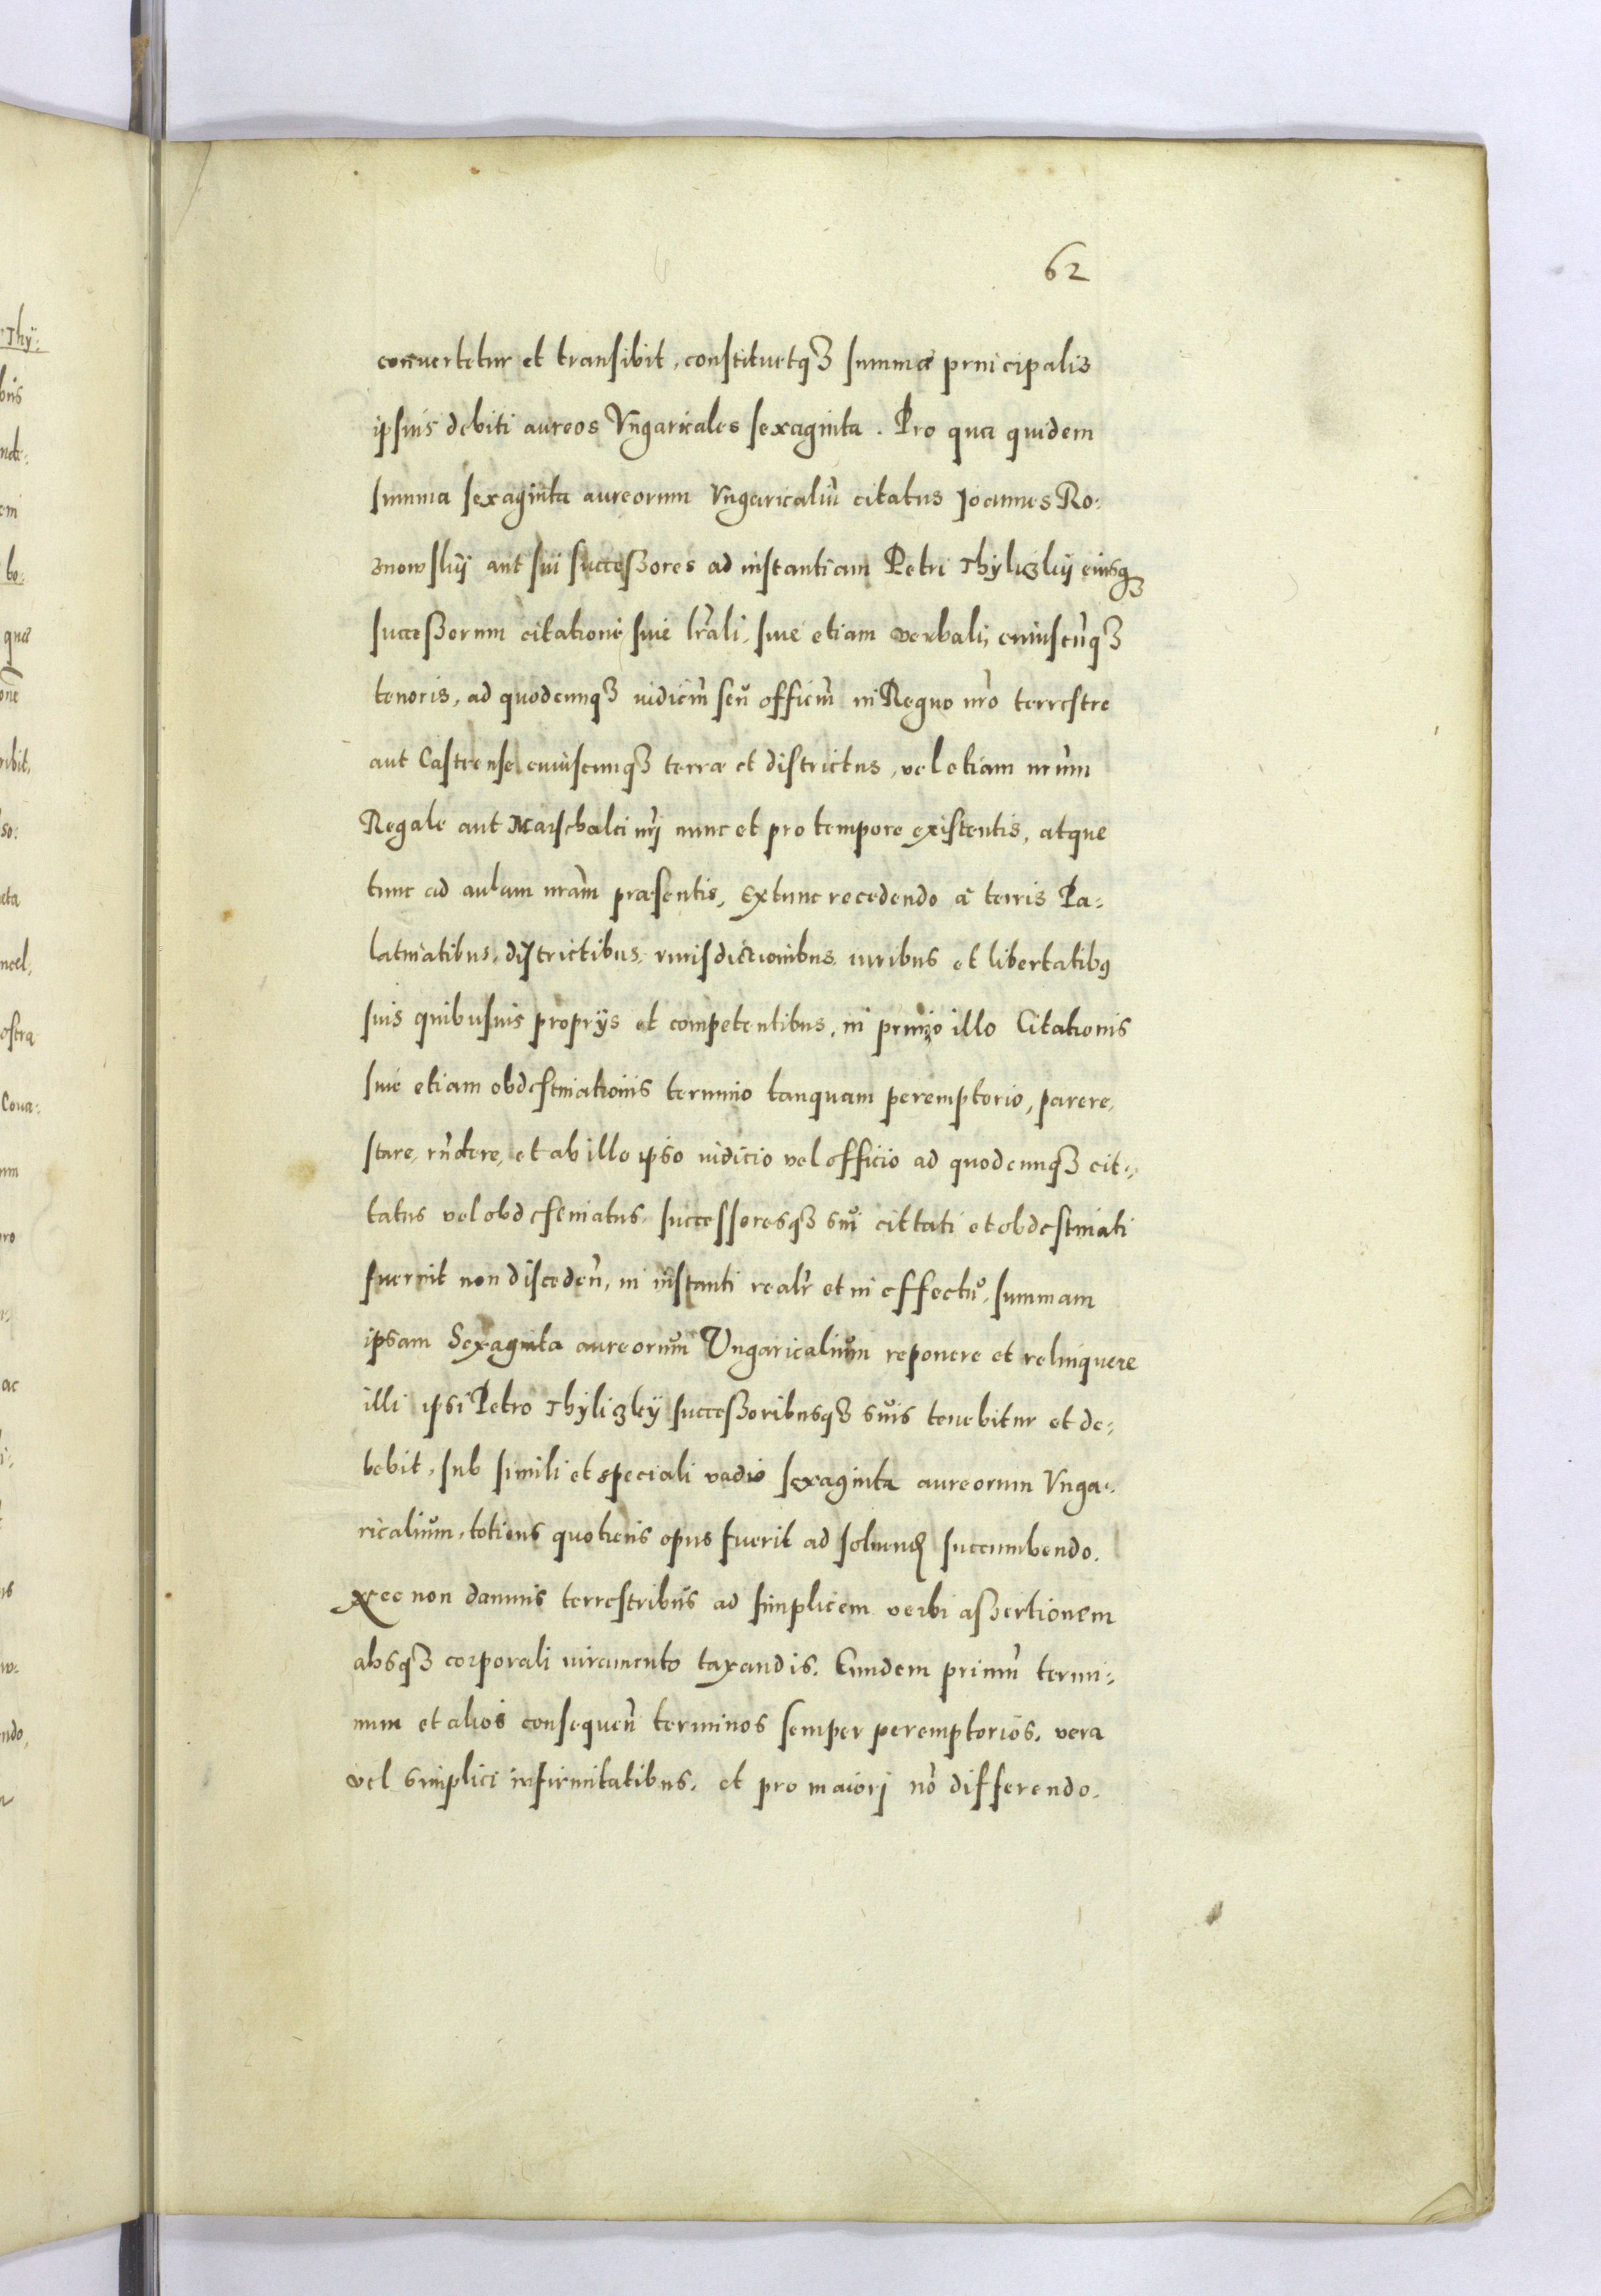 62
conuertetur et transibit, constituetqȝ summæ principalis
ipsius debiti aureos Vngaricales sexaginta. Pro qua quidem
summa sexaginta aureorum Vngaricaliū citatus Joannes Ro:
znowskÿ aut sui successores ad instantiam Petri Thyliczkÿ eiusqȝ
successorum citatione siue lrāli, siue etiam verbali, cuiuscūqȝ
tenoris, ad quodcunqȝ iudiciū seu officiū in Regno nrō terrestre
aut Castrense cuiuscunqȝ terræ et districtus, vel etiam nrūm
Regale aut Marschalci nrj nunc et pro tempore existentis, atque
tunc ad aulam nrām præsentis, Extunc recedendo à terris Pa:
latinatibus, districtibus, iurisdictionibus, iuribus et libertatibꝰ
suis quibusuis proprÿs et competentibus, in primo illo Citationis
siue etiam obdestinationis termino tanquam peremptorio, parere,
stare, rn̄dere, et ab illo ipso iudicio vel officio ad quodcunqȝ cit:
tatus vel obdestinatus, successoresqȝ sui cittati et obdestinati
fuerint non disceden̄, in instanti realr̄ et in effectu, summam
ipsam Sexaginta aureorum Vngaricalium reponere et relinquere
illi ipsi Petro Thyliczkÿ successoribusqȝ suis tenebitur et de:
bebit, sub simili et speciali vadio sexaginta aureorum Vnga:
ricalium, totiens quotiens opus fuerit ad soluend succumbendo.
Nec non damnis terrestribus ad simplicem verbi assertionem
absqȝ corporali iuramento taxandis. Eundem primū termi:
num et alios consequen̄ terminos semper peremptorios, vera
vel simplici infirmitatibus, et pro maiorj nō differendo.